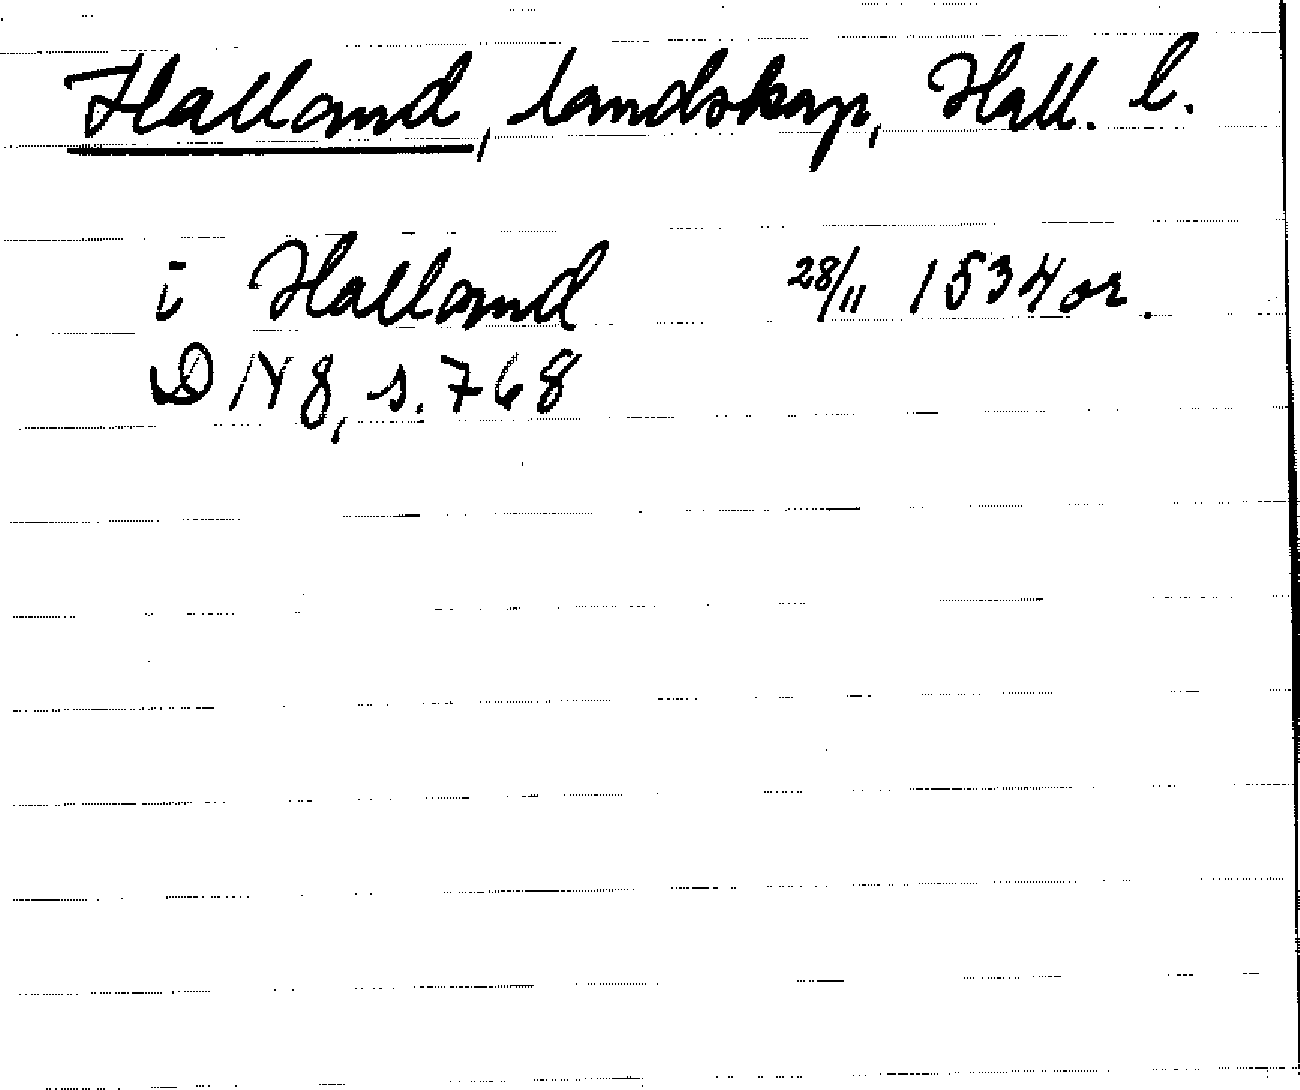 Halland, landskap, Hall. l.
i Halland 28/11 1534 or.
DN 8, s. 768